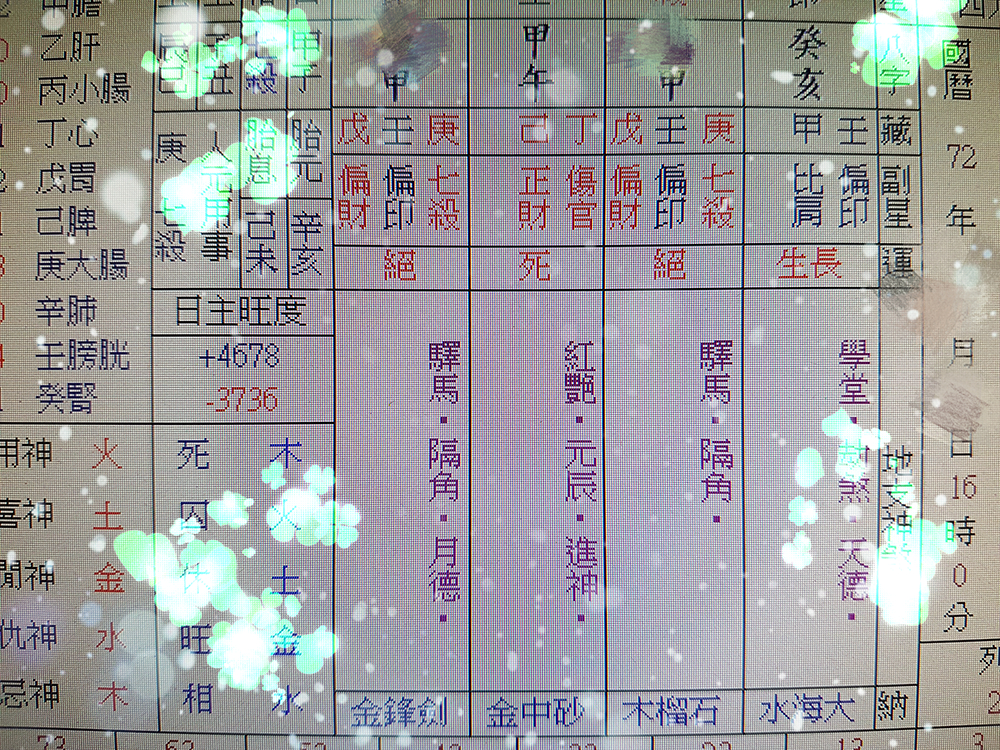 癸亥
甲
甲午
甲
八字
國曆
72
年
月
日
16
時
0
分
甲 壬
戊 壬 庚
己 丁
戊 壬 庚
藏
比肩 偏印
偏財 偏印 七殺
正財 傷官
偏財 偏印 七殺
副星
生長
絕
死
絕
運
學堂
驛馬・隔角・
紅艷・元辰・進神・
驛馬・隔角・月德・
水海大
木榴石
金中砂
金鋒劍
納
甲子
胎元
辛亥
胎息
己未
庚
七殺
日主旺度
+4678
-3736
死 木
囚 火
休 土
旺 金
相 水
甲膽
乙肝
丙小腸
丁心
戊胃
己脾
庚大腸
辛肺
壬膀胱
癸腎
用神 火
喜神 土
閒神 金
仇神 水
忌神 木